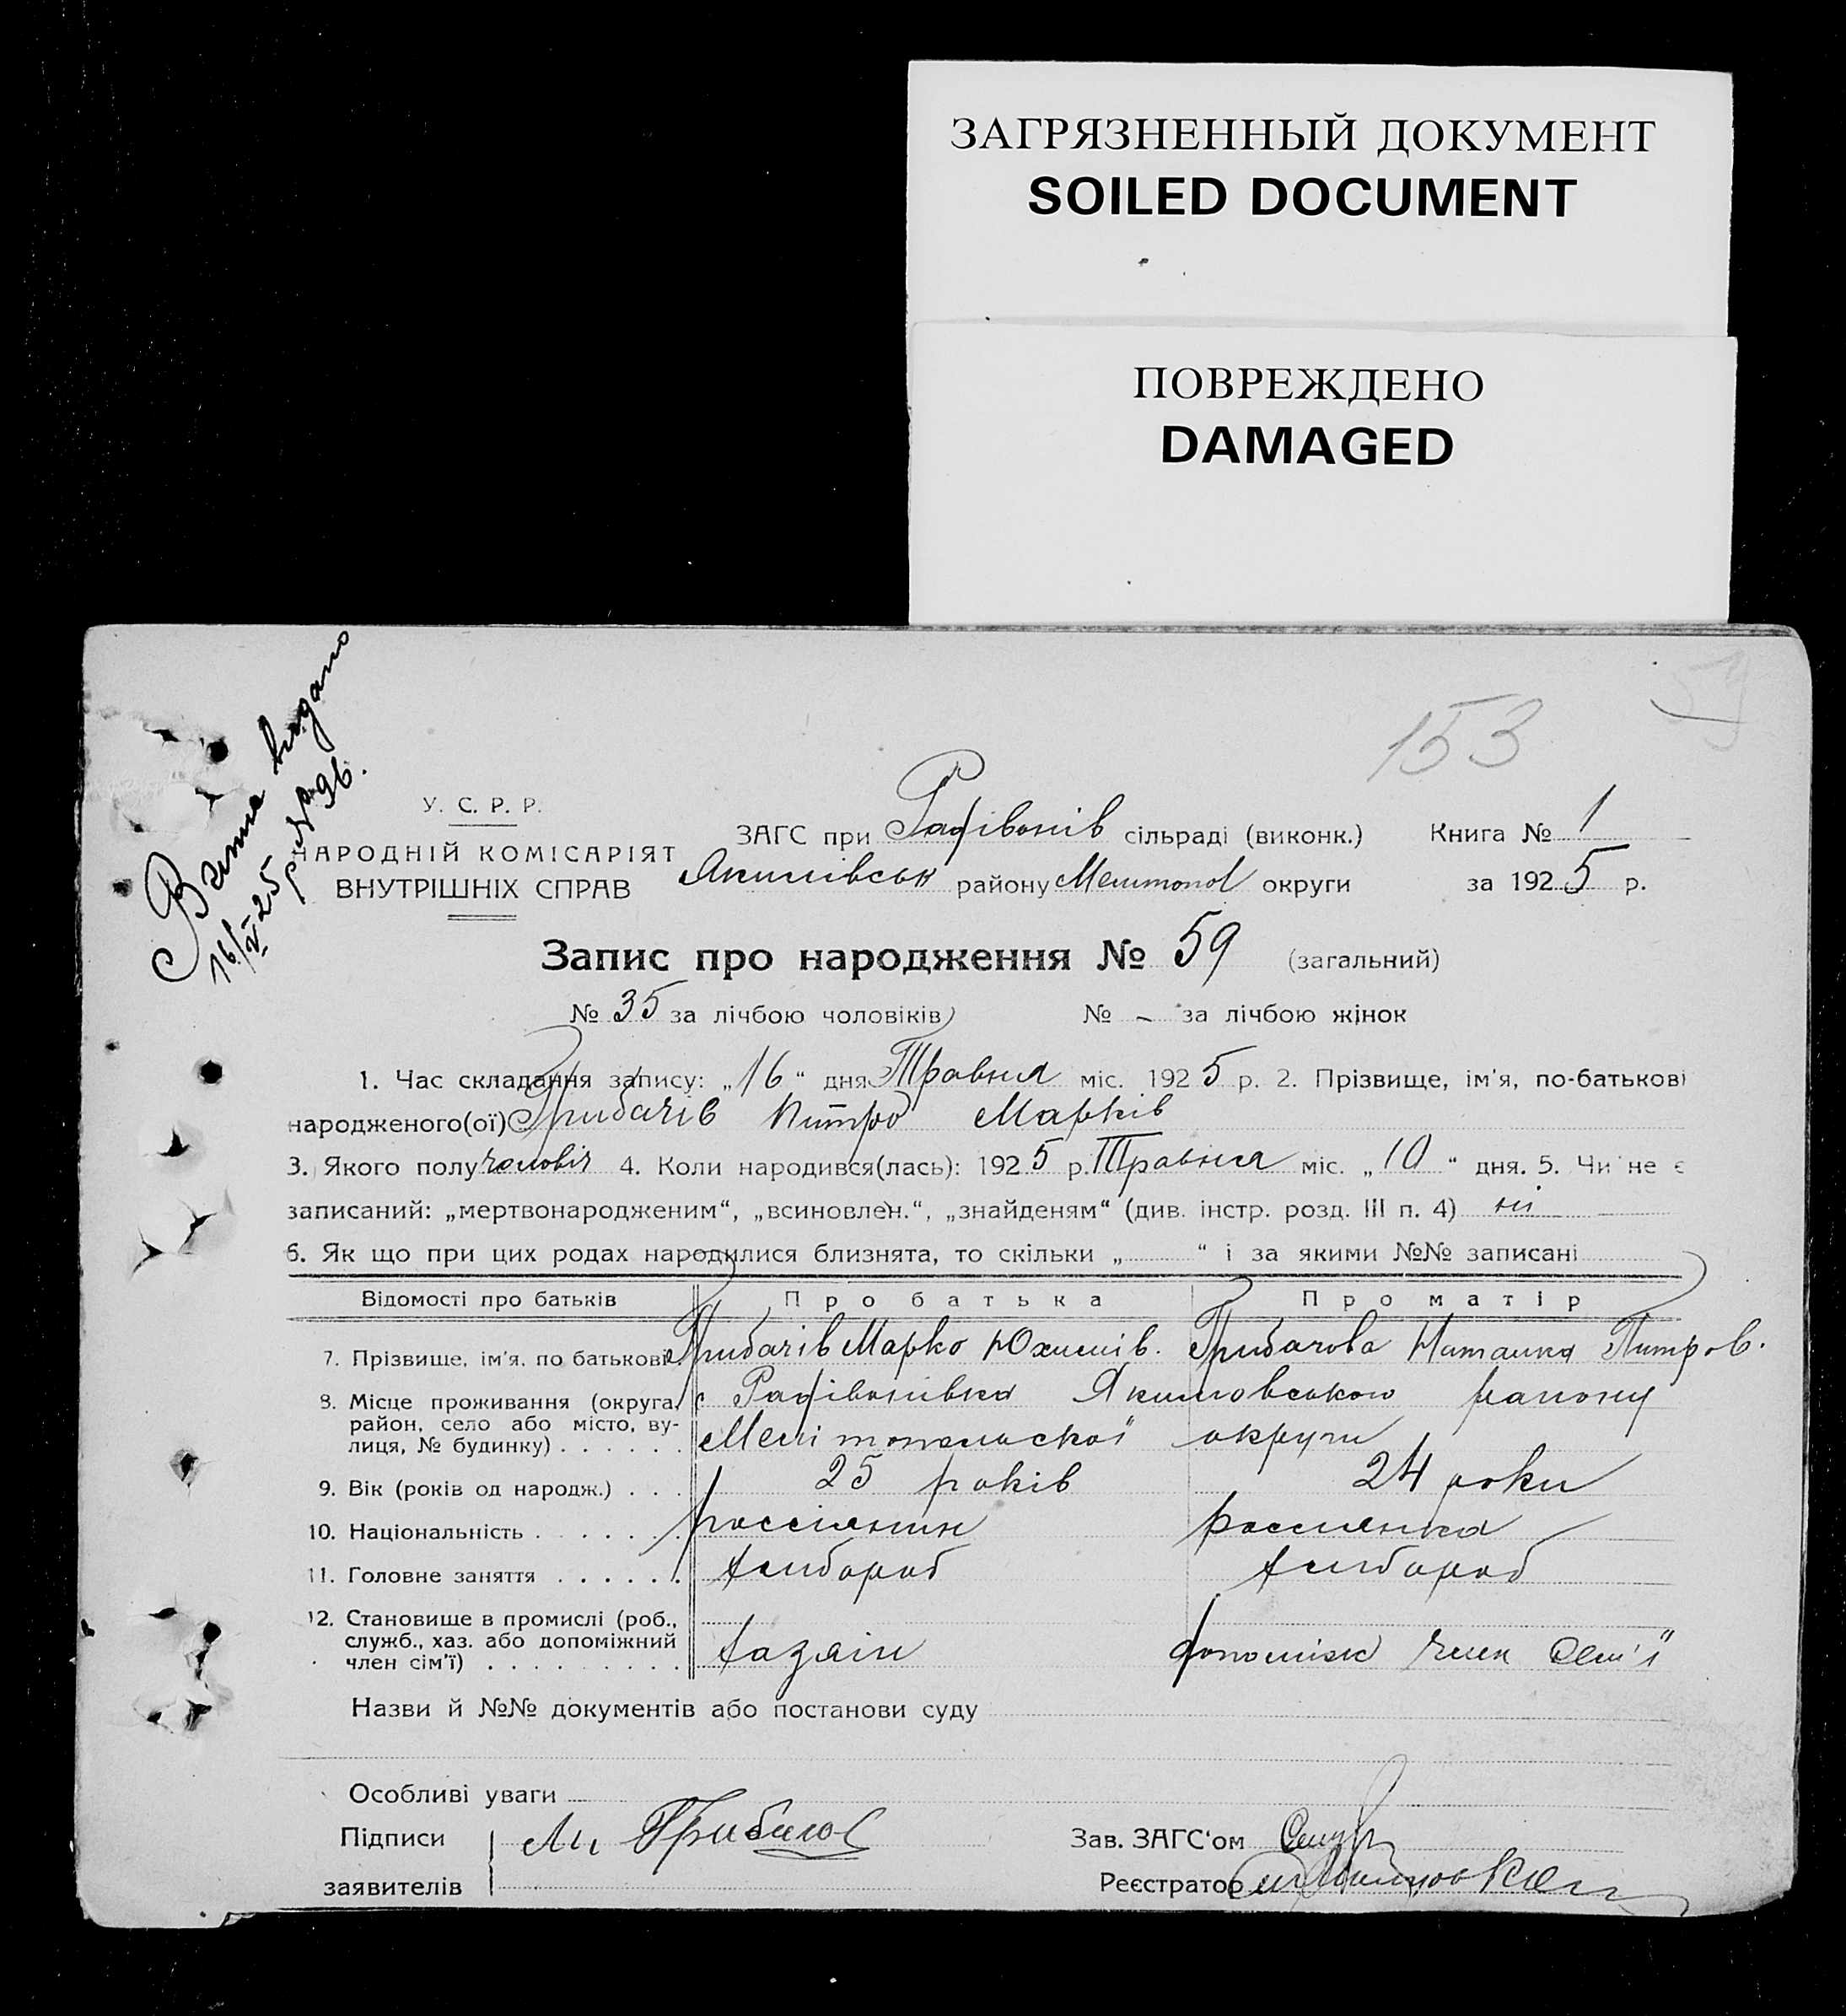 ЗАГРЯЗНЕННЫЙ ДОКУМЕНТ
SOILED DOCUMENT
ПОВРЕЖДЕНО
DAMAGED
153
59
видано
16/V 25 р № 96.
У. С. Р. Р.
НАРОДНІЙ КОМІСАРІЯТ
ВНУТРІШНІХ СПРАВ
ЗАГС при Радівонів сільраді (виконк.) Книга № 1
Якимівськ району Мелітопол округи за 1925 р.
Запис про народження № 59 (загальний)
№ 35 за лічбою чоловіків № – за лічбою жінок
1. Час складання запису: „16“ дня Травня міс. 1925 р. 2. Прізвище, ім'я, по-батькові
народженого(ої) Грибачів Питро Марків
3. Якого полу чоловіч 4. Коли народився(лась): 1925 р. Травня міс. „10“ дня. 5. Чи не є
записаний: „мертвонародженим“, „всиновлен.“, „знайденям“ (див. інстр. розд. III п. 4) ні
6. Як що при цих родах народилися близнята, то скільки „ “ і за якими №№ записані
Відомості про батьків Про батька Про матір
7. Прізвище, ім'я, по батькові. Грибачів Марко Юхимів. Грибачова Наталка Питров.
8. Місце проживання (округа, район, село або місто, вулиця, № будинку) . . . . . . с Радівонівка Якимовського району
Мелітопольської округи
9. Вік (років од народж.) . . . 25 років 24 роки
10. Національність . . . . . . . россіянин россиянка
11. Головне заняття . . . . . . хлибороб хлибороб
12. Становище в промислі (роб., служб., хаз. або допоміжний член сім'ї) . . . . . . . . . хазяін допоміжн член сем'ї
Назви й №№ документів або постанови суду
Особливі уваги
Підписи
заявителів
М Грибачов
Зав. ЗАГС'ом
Реєстратор